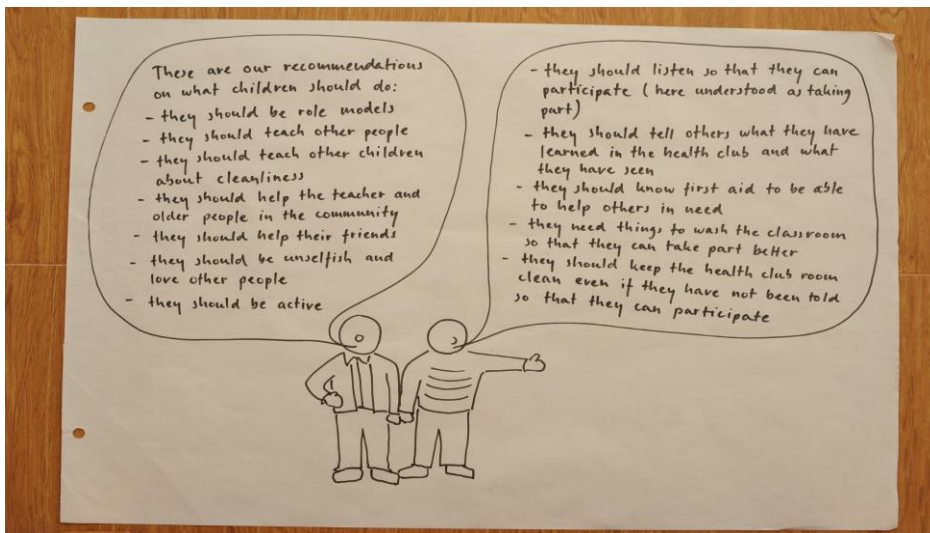 These are our recommendations
on what children should do:
- they should be role models
- they should teach other people
- they should teach other children
about cleanliness
- they should help the teacher and
older people in the community
- they should help their friends
- they should be unselfish and
love other people
- they should be active
- they should listen so that they can
participate (here understood as taking
part)
- they should tell others what they have
learned in the health club and what
they have seen
- they should know first aid to be able
to help others in need
- they need things to wash the classroom
so that they can take part better
- they should keep the health club room
clean even if they have not been told
so that they can participate